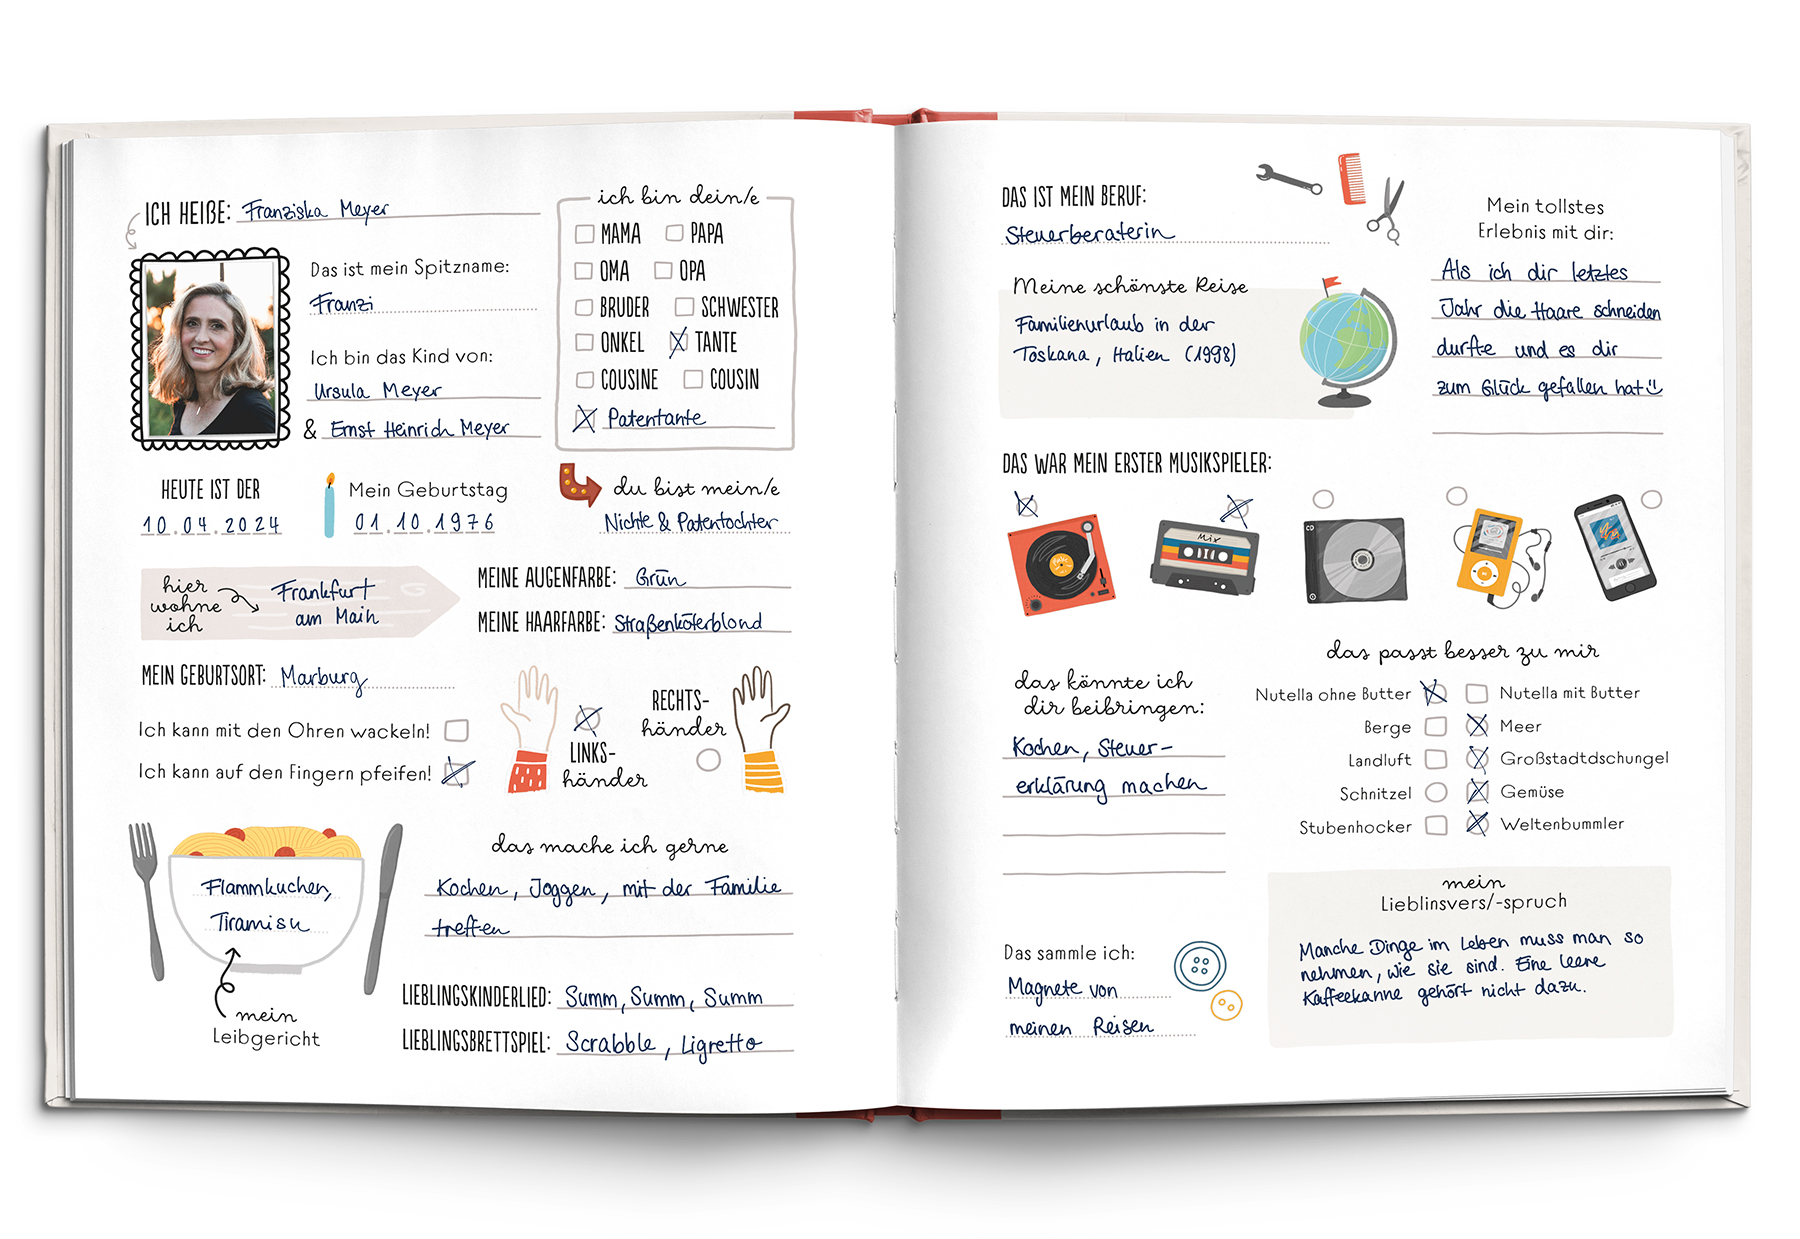 ICH HEIẞE: Franziska Meyer
Das ist mein Spitzname:
Franzi
Ich bin das Kind von:
Ursula Meyer
& Ernst Heinrich Meyer
ich bin dein/e
MAMA PAPA
OMA OPA
BRUDER SCHWESTER
ONKEL TANTE
COUSINE COUSIN
Patentante
HEUTE IST DER
10.04.2024
Mein Geburtstag
01.10.1976
du bist mein/e
Nichte & Patentochter
hier
wohne
ich
Frankfurt
am Main
MEINE AUGENFARBE: Grün
MEINE HAARFARBE: Straßenköterblond
MEIN GEBURTSORT: Marburg
Ich kann mit den Ohren wackeln!
Ich kann auf den Fingern pfeifen!
LINKS-
händer
RECHTS-
händer
Flammkuchen,
Tiramisu
mein
Leibgericht
das mache ich gerne
Kochen, Joggen, mit der Familie
treffen
LIEBLINGSKINDERLIED: Summ, Summ, Summ
LIEBLINGSBRETTSPIEL: Scrabble, Ligretto
DAS IST MEIN BERUF:
Steuerberaterin
Meine schönste Reise
Familienurlaub in der
Toskana, Italien (1998)
Mein tollstes
Erlebnis mit dir:
Als ich dir letztes
Jahr die Haare schneiden
durfte und es dir
zum Glück gefallen hat
DAS WAR MEIN ERSTER MUSIKSPIELER:
Mix
CD
das könnte ich
dir beibringen:
Kochen, Steuer-
erklärung machen
das passt besser zu mir
Nutella ohne Butter Nutella mit Butter
Berge Meer
Landluft Großstadtdschungel
Schnitzel Gemüse
Stubenhocker Weltenbummler
Das sammle ich:
Magnete von
meinen Reisen
mein
Lieblinsvers/-spruch
Manche Dinge im Leben muss man so
nehmen, wie sie sind. Eine leere
Kaffeekanne gehört nicht dazu.